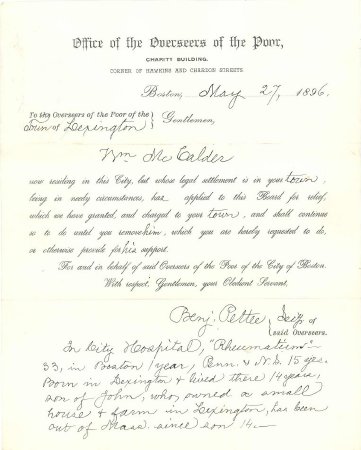 Office of the Overseers of the Poor,
CHARITY BUILDING,
CORNER OF HAWKINS AND CHARDON STREETS.
Boston, May 27, 1896.
To the Overseers of the Poor of the
Town of Lexington
Gentlemen,
Wm McCalder
now residing in this City, but whose legal settlement is in your town,
being in needy circumstances, has applied to this Board for relief,
which we have granted, and charged to your town, and shall continue
so to do until you remove him, which you are hereby requested to do,
or otherwise provide for his support.
For and in behalf of said Overseers of the Poor of the City of Boston.
With respect, Gentlemen, your Obedient Servant,
Benj. Pettee Sec'y of
said Overseers.
In City Hospital, "Rheumatism"
33, in Boston 1 year, Penn. & N.S. 15 yrs.
Born in Lexington & lived there 14 years,
son of John, who owned a small
house & farm in Lexington, has been
out of Mass. since son 14.